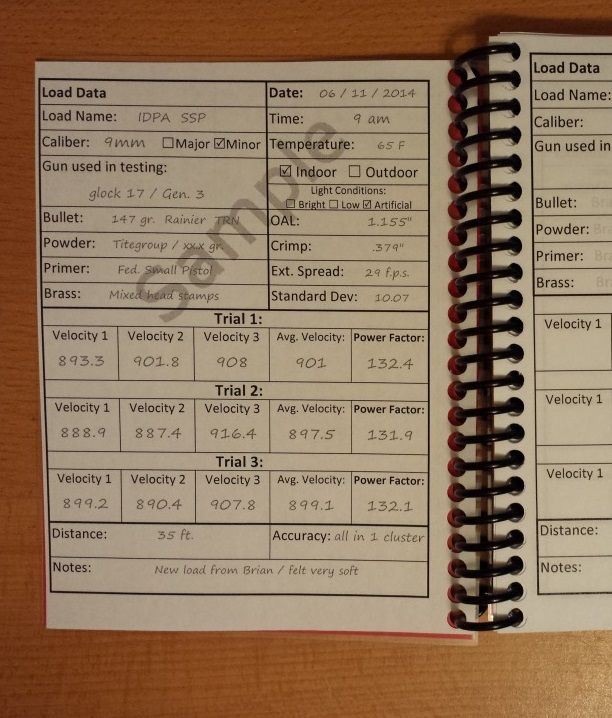 Load Data Date: 06 / 11 / 2014
Load Name: IDPA SSP Time: 9 am
Caliber: 9mm ☐Major ☑Minor Temperature: 65 F
Gun used in testing: ☑ Indoor ☐ Outdoor
glock 17 / Gen. 3 Light Conditions:
☐ Bright ☐ Low ☑ Artificial
Bullet: 147 gr. Rainier TRN OAL: 1.155"
Powder: Titegroup / xx.x gr. Crimp: .379"
Primer: Fed. Small Pistol Ext. Spread: 29 f.p.s.
Brass: Mixed head stamps Standard Dev: 10.07
Sample
Trial 1:
Velocity 1 Velocity 2 Velocity 3 Avg. Velocity: Power Factor:
893.3 901.8 908 901 132.4
Trial 2:
Velocity 1 Velocity 2 Velocity 3 Avg. Velocity: Power Factor:
888.9 887.4 916.4 897.5 131.9
Trial 3:
Velocity 1 Velocity 2 Velocity 3 Avg. Velocity: Power Factor:
899.2 890.4 907.8 899.1 132.1
Distance: 35 ft. Accuracy: all in 1 cluster
Notes: New load from Brian / felt very soft
Load Data
Load Name:
Caliber:
Gun used in
Bullet:
Powder:
Primer:
Brass:
Velocity 1
Velocity 1
Velocity 1
Distance:
Notes: